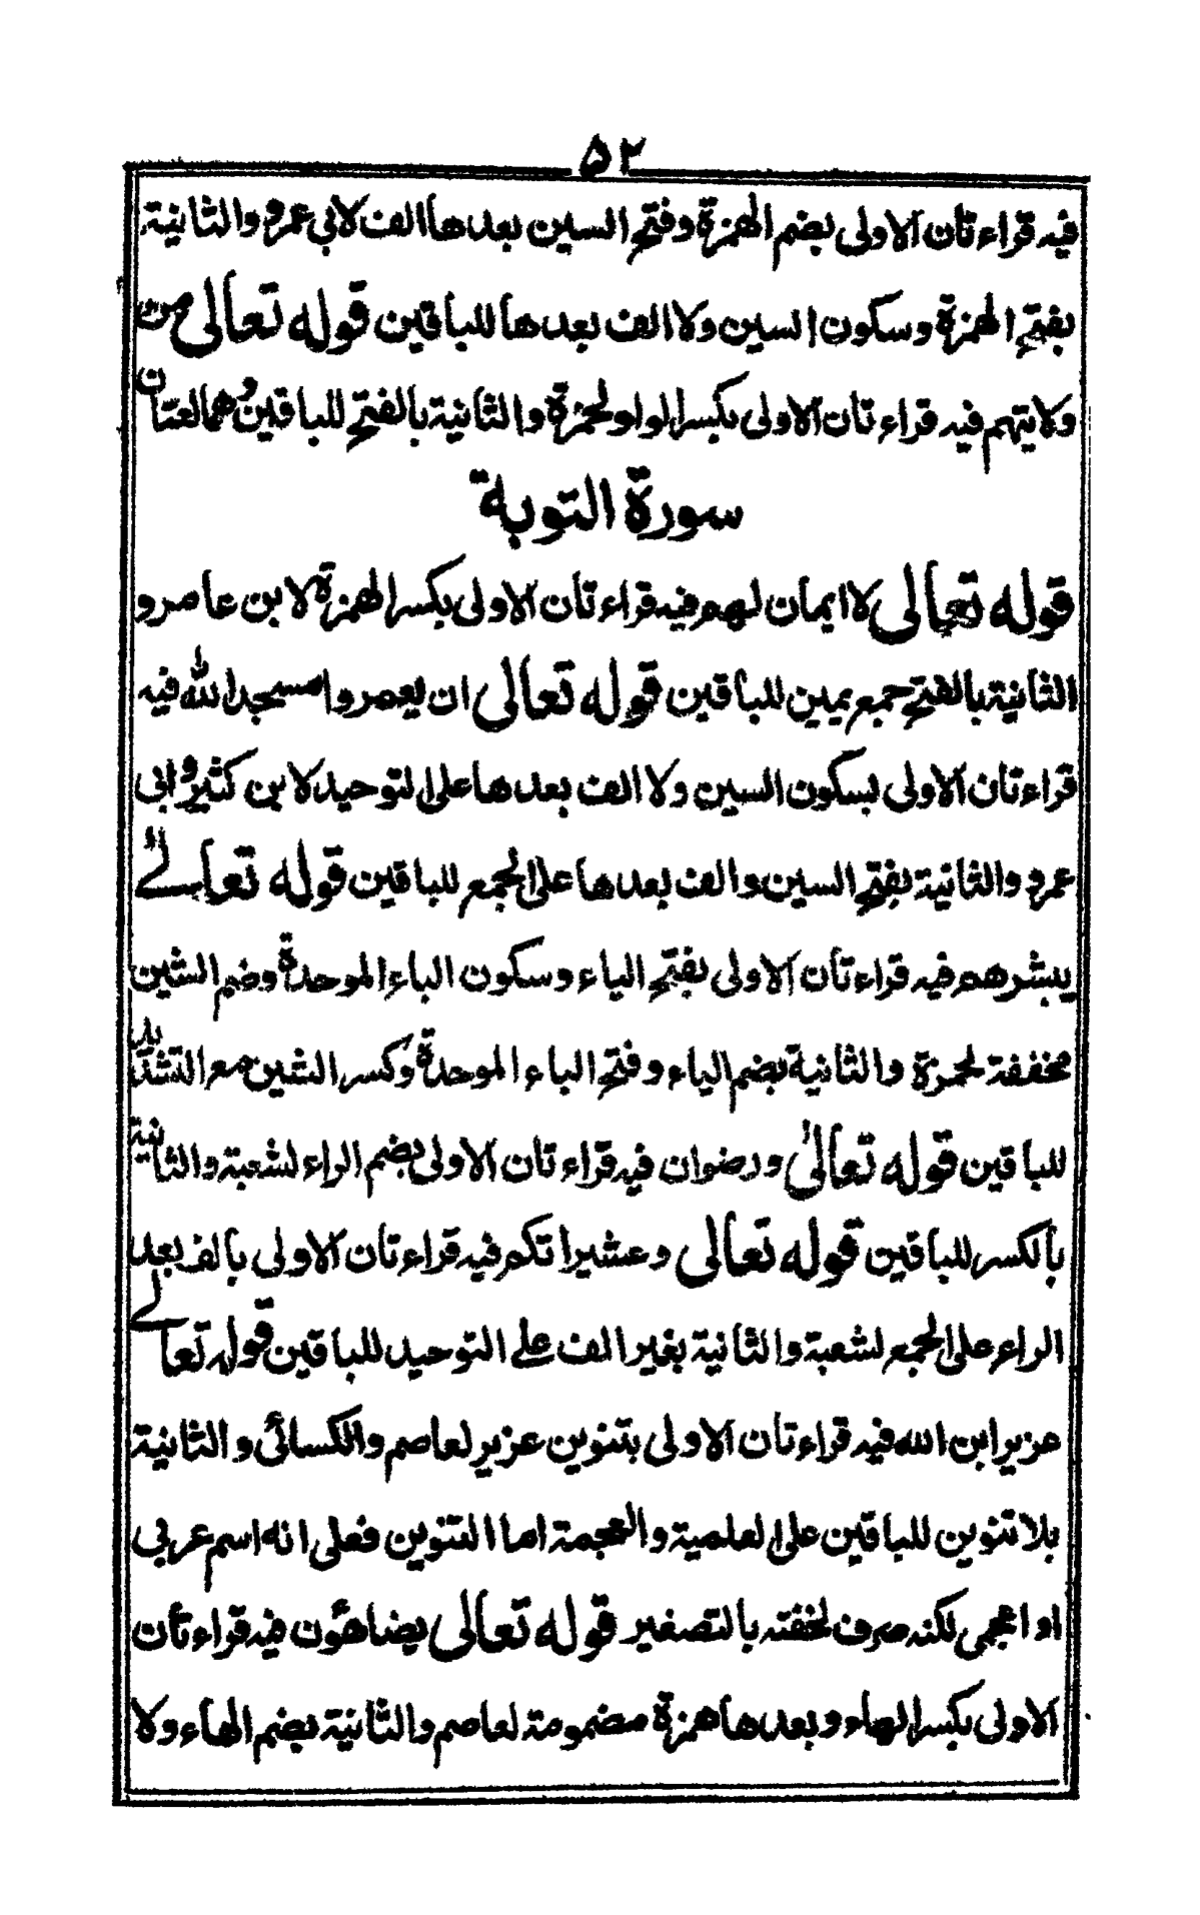 ۵۲
فيه قراءتان الاولى بضم الهمزة وفتح السين بعدها الف لابي عمرو والثانية
بفتح الهمزة وسكون السين ولا الف بعدها للباقين قوله تعالى من
ولايتهم فيه قراءتان الاولى بكسر الواو لحمزة والثانية بالفتح للباقين وهما لغتان
سورة التوبة
قوله تعالى لا ايمان لهم فيه قراءتان الاولى بكسر الهمزة لابن عامر و
الثانية بالفتح جمع يمين للباقين قوله تعالى ان يعمروا مسجد الله فيه
قراءتان الاولى بسكون السين ولا الف بعدها على التوحيد لابن كثير وابى
عمرو والثانية بفتح السين والف بعدها على الجمع للباقين قوله تعالى
يبشرهم فيه قراءتان الاولى بفتح الياء وسكون الباء الموحدة وضم الشين
مخففة لحمزة والثانية بضم الياء وفتح الباء الموحدة وكسر الشين مع التشديد
للباقين قوله تعالى ورضوان فيه قراءتان الاولى بضم الراء لشعبة والثانية
بالكسر للباقين قوله تعالى وعشيراتكم فيه قراءتان الاولى بالف بعد
الراء على الجمع لشعبة والثانية بغير الف على التوحيد للباقين قوله تعالى
عزير ابن الله فيه قراءتان الاولى بتنوين عزير لعاصم والكسائى والثانية
بلا تنوين للباقين على العلمية والعجمة اما التنوين فعلى انه اسم عربي
او اعجمي لكنه صرف لخفته بالتصغير قوله تعالى يضاهؤن فيه قراءتان
الاولى بكسر الهاء وبعدها همزة مضمومة لعاصم والثانية بضم الهاء ولا